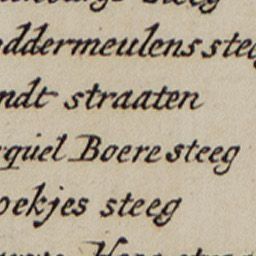 ddermeulens steeg
ndt straaten
quel Boere steeg
oekjes steeg